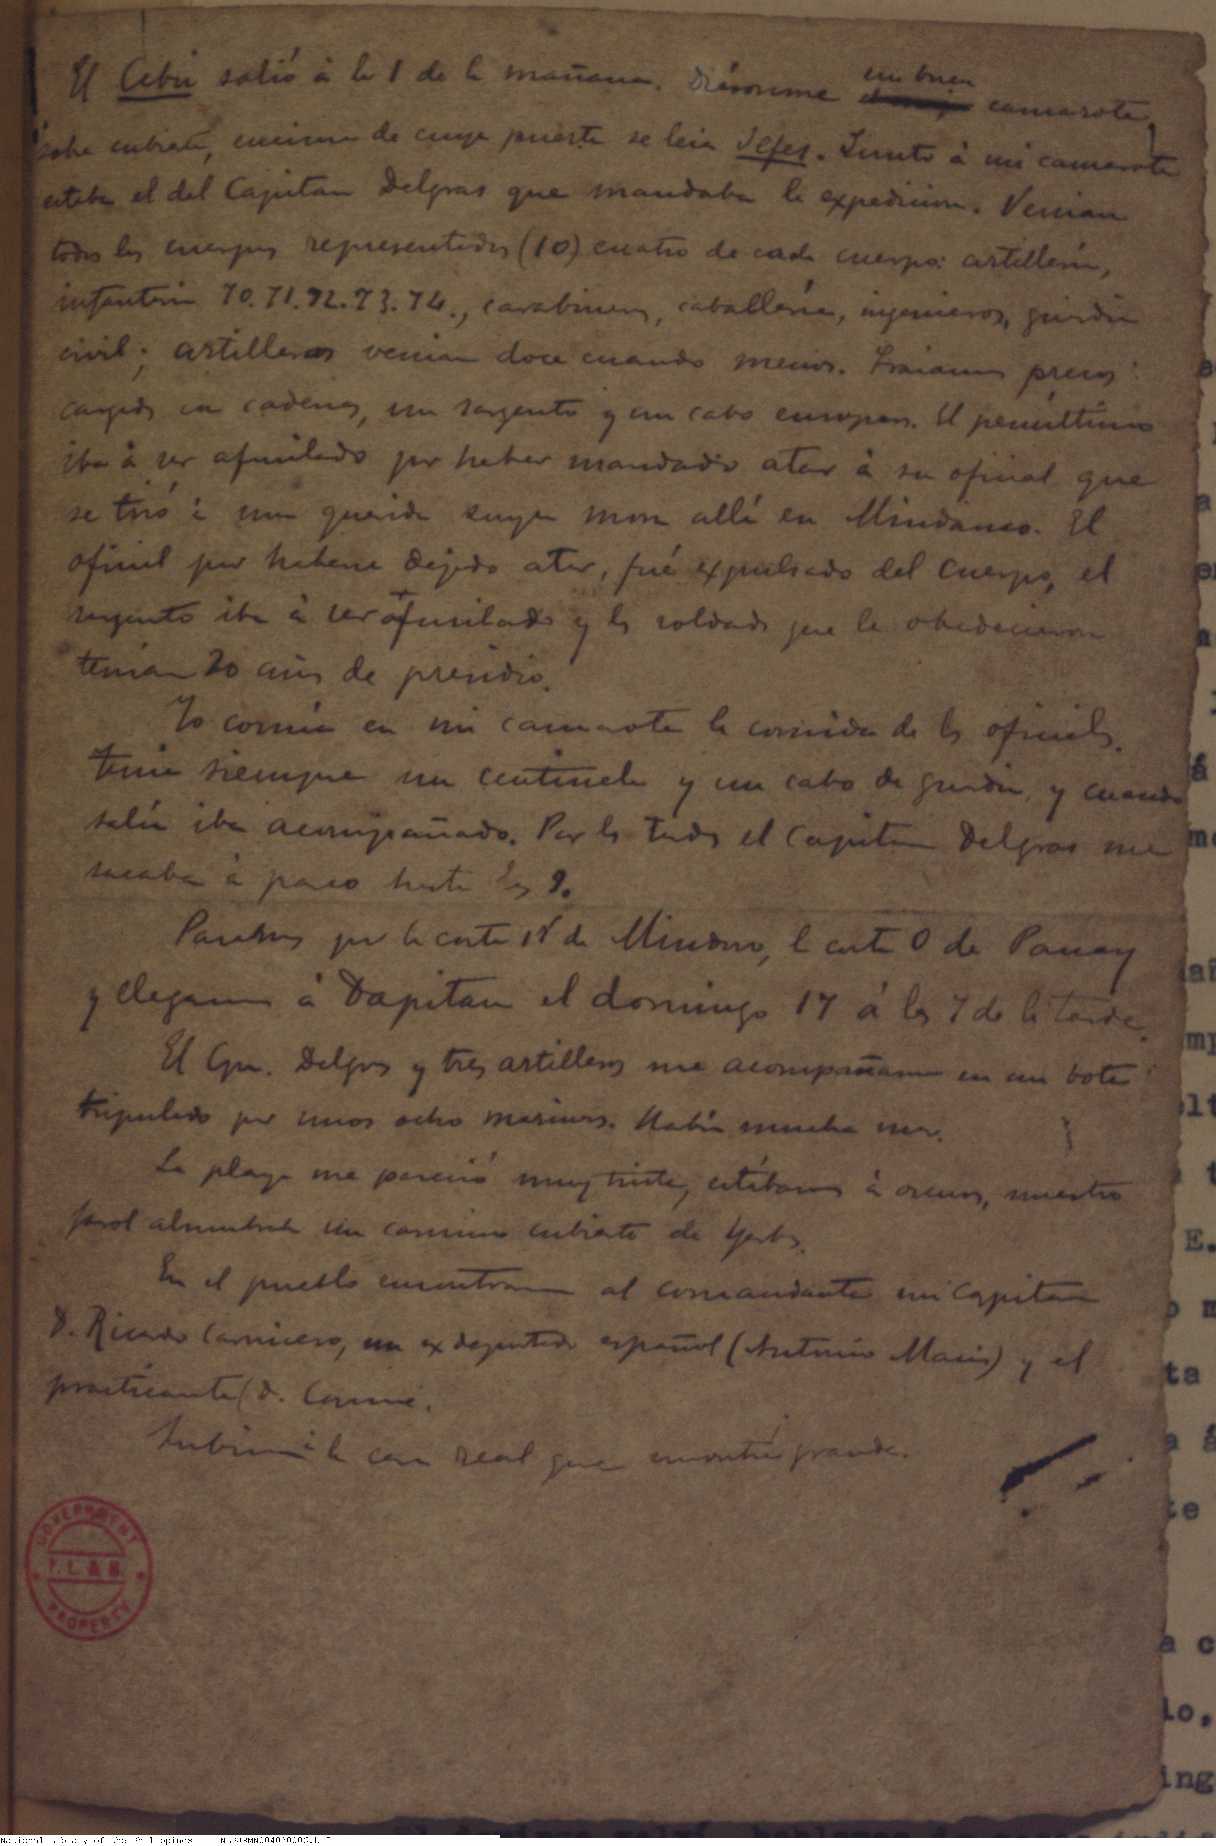 El Cebú salió á la 1 de la mañana. Diéronme un buen camarote,
sobre cubierta, encima de cuya puerta se leía Jefes. Junto á mi camarote
estaba el del Capitan Delgras que mandaba la expedicion. Venian
todos los cuerpos representados (10) cuatro de cada cuerpo: artillería,
infantería 70. 71. 72. 73. 74., carabineros, caballería, ingenieros, guardia
civil; artilleros venian doce cuando menos. Traiamos presos
cargados en cadenas, un sargento y un cabo europeos. El penúltimo
iba á ser afusilado por haber mandado atar á su oficial que
se tiró á una querida suya mora allá en Mindanao. El
oficial por haberse dejado atar, fué expulsado del cuerpo, el
sargento iba á ser afusilado y los soldados que le obedecieron
tenian 20 años de presidio.
Yo comía en mi camarote la comida de los oficiales.
Tenia siempre un centinela y un cabo de guardia, y cuando
salía iba acompañado. Por las tardes el Capitan Delgras me
sacaba á paseo hasta las 9.
Pasamos por la costa de Mindoro, la costa O de Panay
y llegamos á Dapitan el domingo 17 á las 7 de la tarde.
El Cpn. Delgras y tres artilleros me acompañaron en un bote
tripulado por unos ocho marineros. Había mucha mar.
La playa me pareció muy triste, estábamos á oscuras, nuestro
farol alumbraba un camino cubierto de yerbas.
En el pueblo encontramos al comandante mi Capitan
D. Ricardo Carnicero, un ex deportado español (Antonio Macis) y el
practicante (D. Cosme.
Subimos á la casa real que encontré grande.
GOVERNMENT
P. L. & M.
PROPERTY
National Library of the Philippines